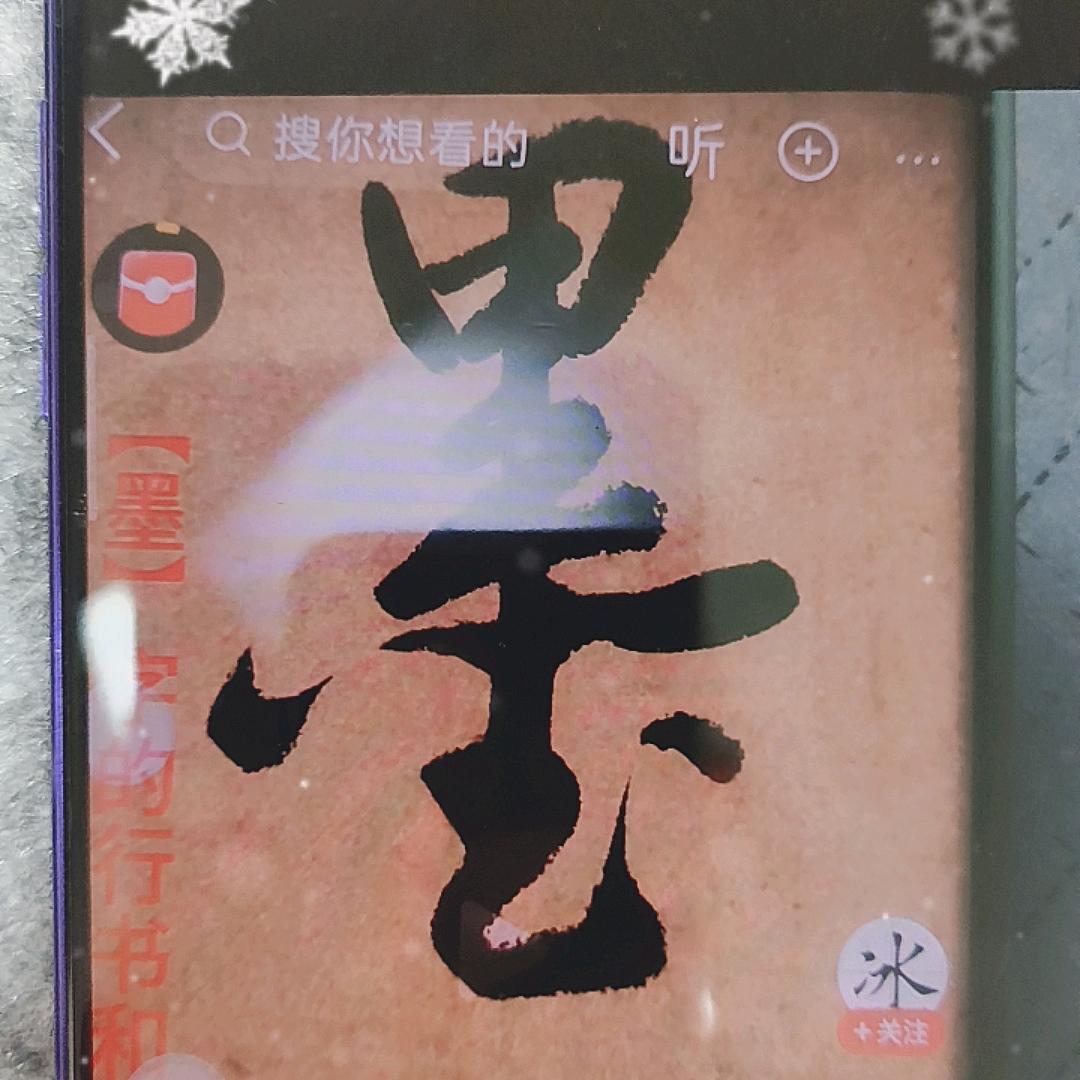 搜你想看的 听
墨
【墨】字的行书和
冰
+关注